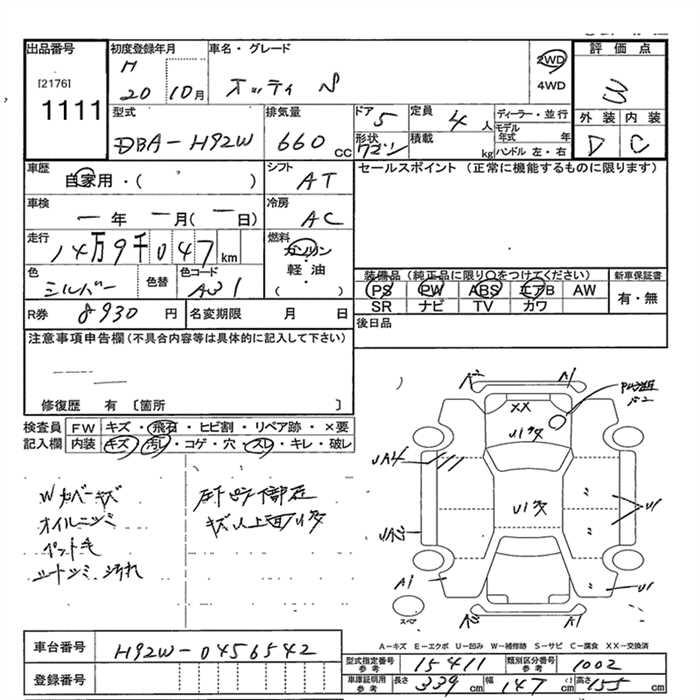 出品番号
[2176]
1111
初度登録年月
H 20 10月
車名・グレード
オッティ S
2WD
4WD
評価点
3
外装 内装
D C
型式
DBA-H92W
排気量
660 CC
ドア 5
定員 4 人
形状 ワゴン
積載 kg
ディーラー・並行
モデル年式 年
ハンドル 左・右
車歴
自家用・( )
シフト
AT
セールスポイント (正常に機能するものに限ります)
車検
一年 一月(一日)
冷房
AC
走行
14万9千047 km
燃料
ガソリン・軽油・( )
色
シルバー
色替
色コード
装備品 (純正品に限り○をつけてください)
PS PW ABS エアB AW
SR ナビ TV カワ
新車保証書
有・無
R券 8930 円
名変期限 月 日
後日品
注意事項申告欄 (不具合内容等は具体的に記入して下さい)
修復歴 有 〔箇所 〕
検査員記入欄
FW キズ・飛石・ヒビ割・リペア跡・×要
内装 キズ・汚レ・コゲ・穴・スレ・キレ・破レ
オイルニジミ
ペット毛
シートシミ、汚れ
A1
XX
U1
A1
U1
A1
スペア
A-キズ E-エクボ U-凹み W-補修跡 S-サビ C-腐食 XX-交換済
車台番号
H92W-0456542
登録番号
型式指定番号 参考
15411
類別区分番号 参考
1002
車庫証明用 参考
長さ 339 cm
幅 147 cm
高さ 155 cm